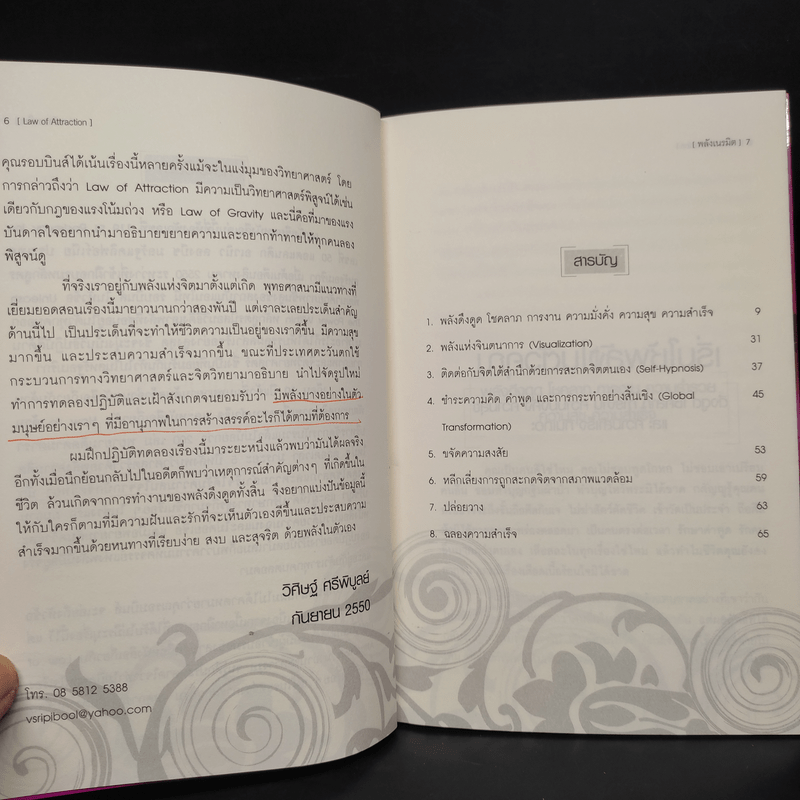 6 [ Law of Attraction ]
คุณรอบบินส์ได้เน้นเรื่องนี้หลายครั้งแม้จะในแง่มุมของวิทยาศาสตร์ โดย
การกล่าวถึงว่า Law of Attraction มีความเป็นวิทยาศาสตร์พิสูจน์ได้เช่น
เดียวกับกฎของแรงโน้มถ่วง หรือ Law of Gravity และนี่คือที่มาของแรง
บันดาลใจอยากนำมาอธิบายขยายความและอยากท้าทายให้ทุกคนลอง
พิสูจน์ดู
ที่จริงเราอยู่กับพลังแห่งจิตมาตั้งแต่เกิด พุทธศาสนามีแนวทางที่
เยี่ยมยอดสอนเรื่องนี้มายาวนานกว่าสองพันปี แต่เราละเลยประเด็นสำคัญ
ด้านนี้ไป เป็นประเด็นที่จะทำให้ชีวิตความเป็นอยู่ของเราดีขึ้น มีความสุข
มากขึ้น และประสบความสำเร็จมากขึ้น ขณะที่ประเทศตะวันตกใช้
กระบวนการทางวิทยาศาสตร์และจิตวิทยามาอธิบาย นำไปจัดรูปใหม่
ทำการทดลองปฏิบัติและเฝ้าสังเกตจนยอมรับว่า มีพลังบางอย่างในตัว
มนุษย์อย่างเราๆ ที่มีอานุภาพในการสร้างสรรค์อะไรก็ได้ตามที่ต้องการ
ผมฝึกปฏิบัติทดลองเรื่องนี้มาระยะหนึ่งแล้วพบว่ามันได้ผลจริง
อีกทั้งเมื่อนึกย้อนกลับไปในอดีตก็พบว่าเหตุการณ์สำคัญต่างๆ ที่เกิดขึ้นใน
ชีวิต ล้วนเกิดจากการทำงานของพลังดึงดูดทั้งสิ้น จึงอยากแบ่งปันข้อมูลนี้
ให้กับใครก็ตามที่มีความฝันและรักที่จะเห็นตัวเองดีขึ้นและประสบความ
สำเร็จมากขึ้นด้วยหนทางที่เรียบง่าย สงบ และสุจริต ด้วยพลังในตัวเอง
วิศิษฐ์ ศรีพิบูลย์
กันยายน 2550
โทร. 08 5812 5388
vsripibool@yahoo.com
[ พลังเนรมิต ] 7
สารบัญ
1. พลังดึงดูด โชคลาภ การงาน ความมั่งคั่ง ความสุข ความสำเร็จ 9
2. พลังแห่งจินตนาการ (Visualization) 31
3. ติดต่อกับจิตใต้สำนึกด้วยการสะกดจิตตนเอง (Self-Hypnosis) 37
4. ชำระความคิด คำพูด และการกระทำอย่างสิ้นเชิง (Global 45
Transformation)
5. ขจัดความสงสัย 53
6. หลีกเลี่ยงการถูกสะกดจิตจากสภาพแวดล้อม 59
7. ปล่อยวาง 63
8. ฉลองความสำเร็จ 65